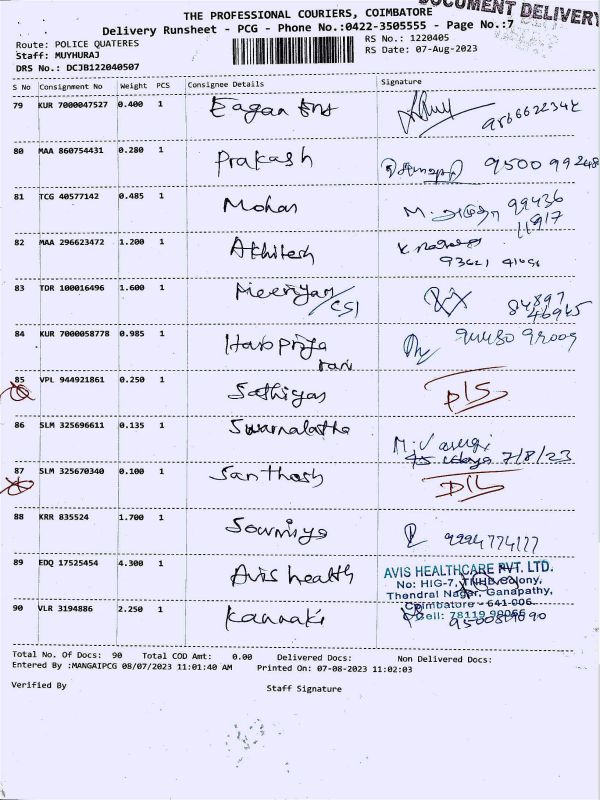 THE PROFESSIONAL COURIERS, COIMBATORE
DOCUMENT DELIVERY
Delivery Runsheet - PCG - Phone No.:0422-3505555 - Page No.:7
Route: POLICE QUATERES
RS No.: 1220405
Staff: MUYHURAJ
RS Date: 07-Aug-2023
DRS No.: DCJB122040507
S No Consignment No Weight PCS Consignee Details Signature
79 KUR 7000047527 0.400 1 Eagan
80 MAA 860754431 0.280 1 Prakash 95009 99248
81 TCG 40577142 0.485 1 Mohan M. 99436
11917
82 MAA 296623472 1.200 1 Athitesh K.
83 TDR 100016496 1.600 1 /CSI 84897
84 KUR 7000058778 0.985 1 Haripriya
rani
85 VPL 944921861 0.250 1 Sathiyas D/S
86 SLM 325696611 0.135 1 Swarnalatha
7/8/23
87 SLM 325670340 0.100 1 Santhosh D/L
88 KRR 835524 1.700 1 Sowmiya 9994774177
89 EDQ 17525454 4.300 1 Avis health AVIS HEALTHCARE PVT. LTD.
No: HIG-7, TNHB Colony,
Thendral Nagar, Ganapathy,
Coimbatore - 641 006.
90 VLR 3194886 2.250 1 Kannaki Cell: 78119 99066
Total No. Of Docs: 90 Total COD Amt: 0.00 Delivered Docs: Non Delivered Docs:
Entered By :MANGAIPCG 08/07/2023 11:01:40 AM Printed On: 07-08-2023 11:02:03
Verified By Staff Signature